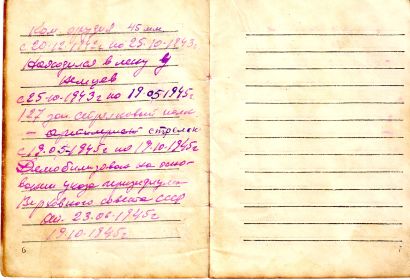 Ком. орудия 45 мм.
с 20.12.1942г. по 25.10.1943г
Находился в плену у
немцев
с 25.10.1943г по 19.05.1945г.
127 зап. стрелковый полк
— стрелок
с 19.05.1945г по 19.10.1945г
Демобилизован на осно-
вании указа президиума
Верховного совета СССР
от 23.06.1945г.
19.10.1945г
6
7